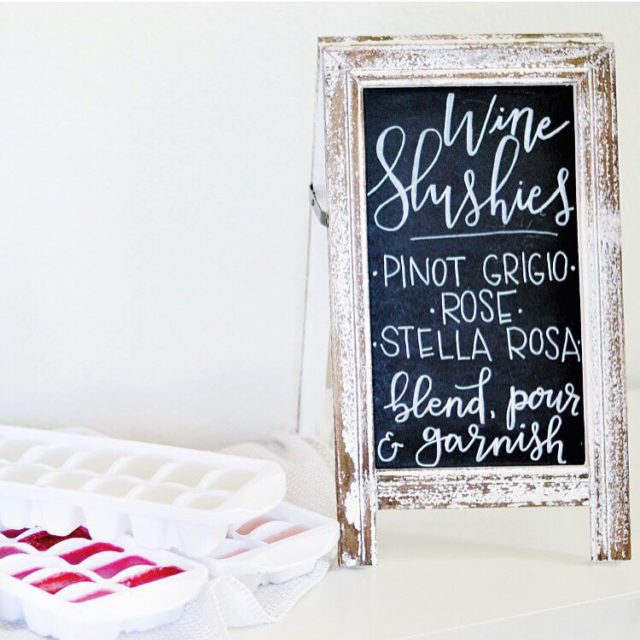 Wine
Slushies
·PINOT GRIGIO·
·ROSE·
·STELLA ROSA·
blend, pour
& garnish